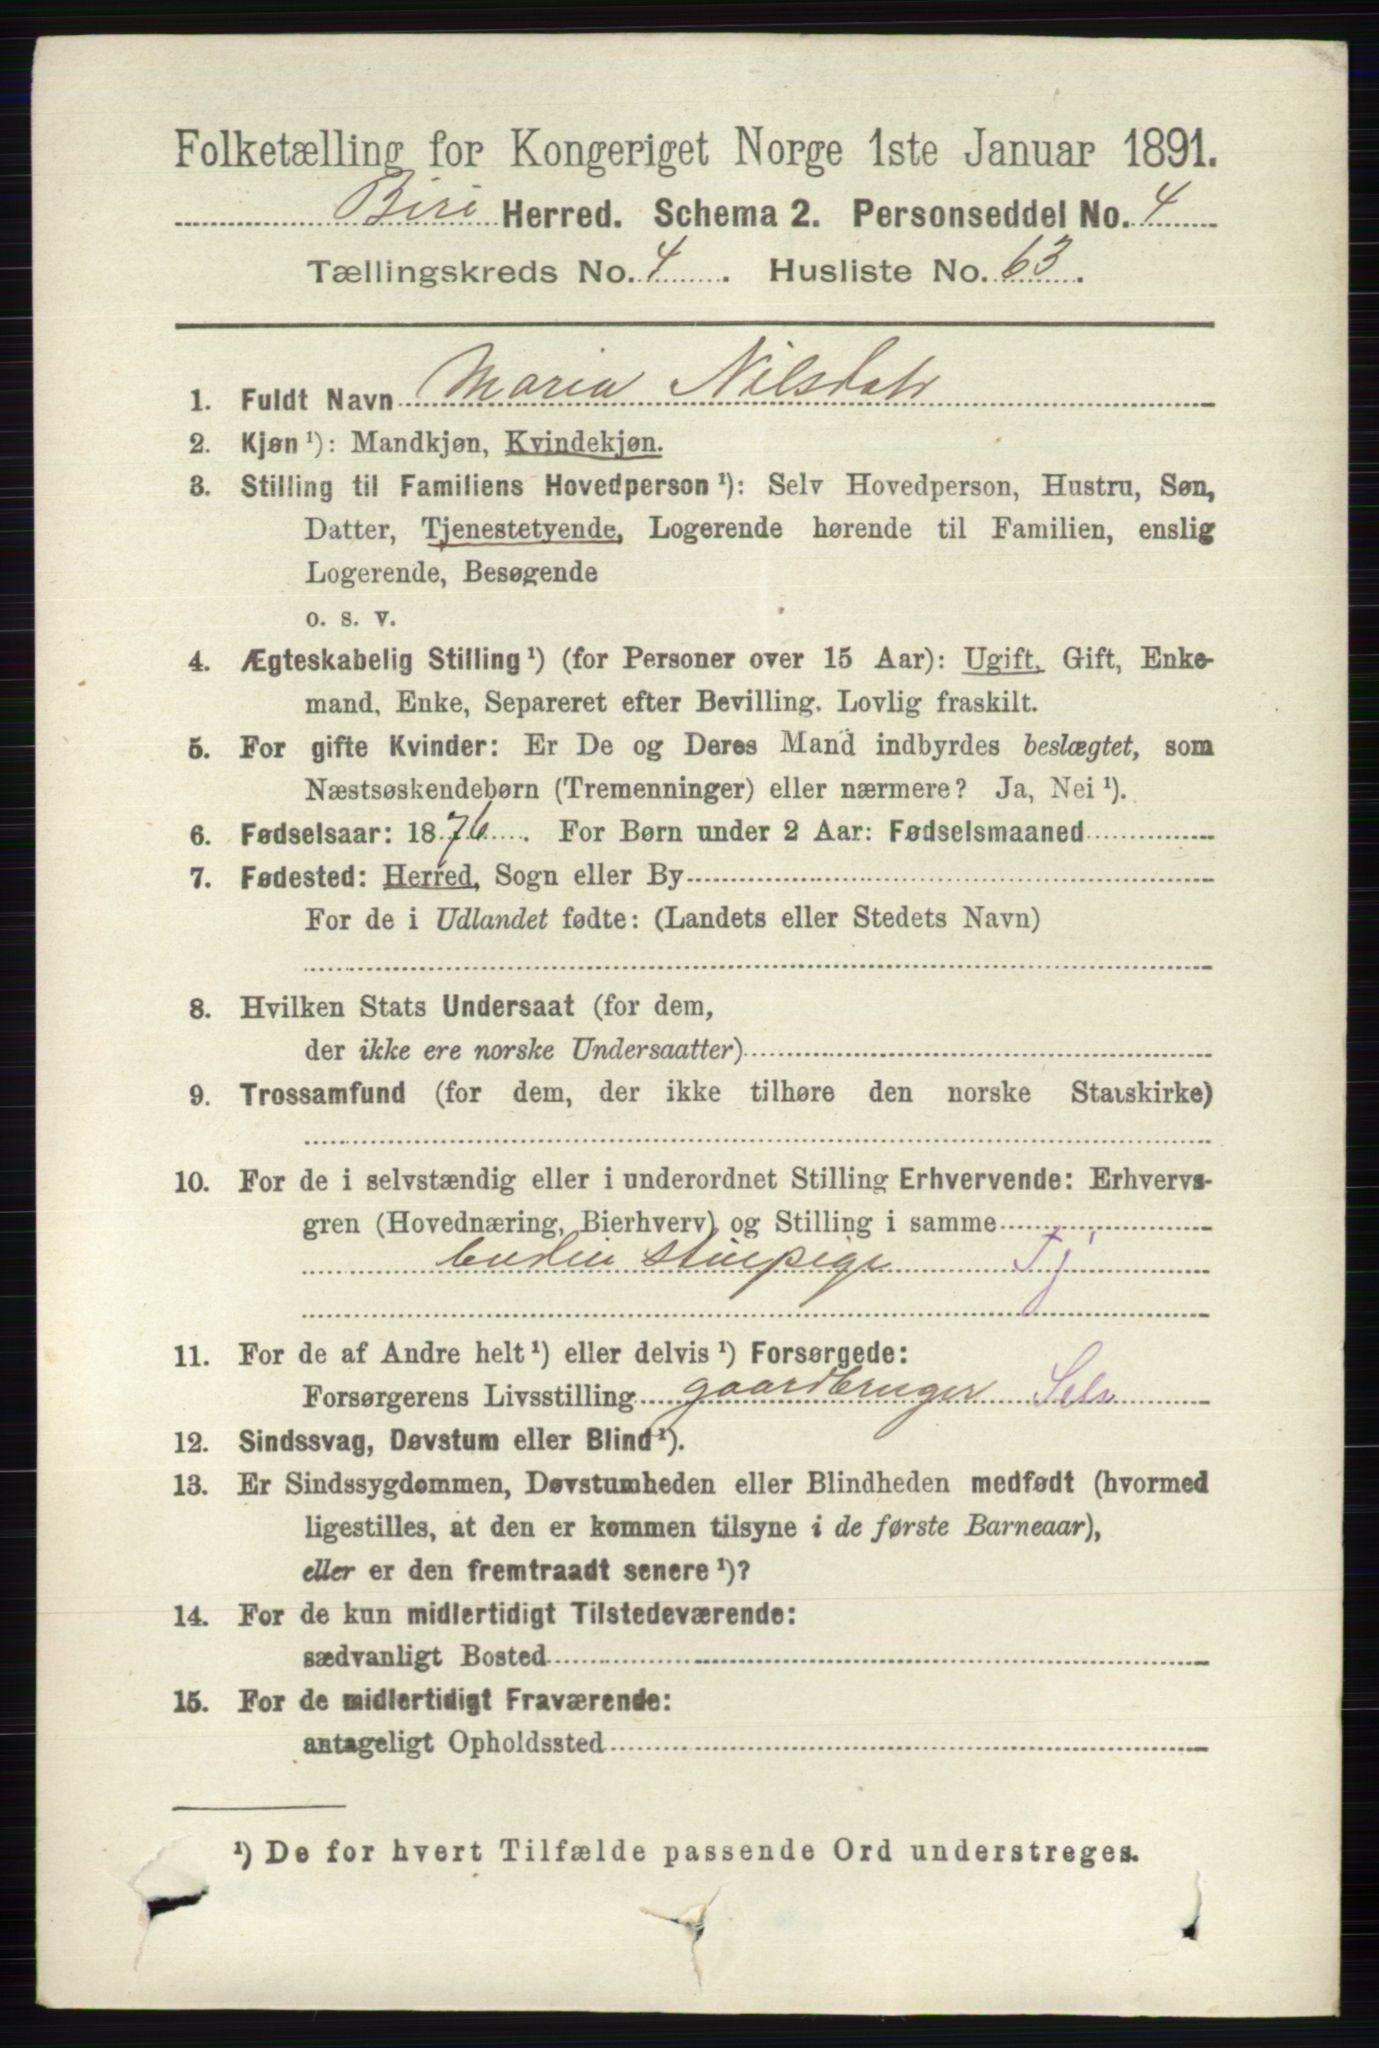 Folketælling for Kongeriget Norge 1ste Januar 1891.
Biri Herred. Schema 2. Personseddel No. 4
Tællingskreds No. 4. Husliste No. 63.
1. Fuldt Navn Maria Nilsdatr
2. Kjøn ¹): Mandkjøn, Kvindekjøn.
3. Stilling til Familiens Hovedperson ¹): Selv Hovedperson, Hustru, Søn,
Datter, Tjenestetyende, Logerende hørende til Familien, enslig
Logerende, Besøgende
o. s. v.
4. Ægteskabelig Stilling ¹) (for Personer over 15 Aar): Ugift, Gift, Enke-
mand, Enke, Separeret efter Bevilling. Lovlig fraskilt.
5. For gifte Kvinder: Er De og Deres Mand indbyrdes beslægtet, som
Næstsøskendebørn (Tremenninger) eller nærmere? Ja, Nei ¹).
6. Fødselsaar: 1876. For Børn under 2 Aar: Fødselsmaaned
7. Fødested: Herred, Sogn eller By
For de i Udlandet fødte: (Landets eller Stedets Navn)
8. Hvilken Stats Undersaat (for dem,
der ikke ere norske Undersaatter)
9. Trossamfund (for dem, der ikke tilhøre den norske Statskirke)
10. For de i selvstændig eller i underordnet Stilling Erhvervende: Erhvervs-
gren (Hovednæring, Bierhverv) og Stilling i samme
Tj
11. For de af Andre helt ¹) eller delvis ¹) Forsørgede:
Forsørgerens Livsstilling gaardbruger Selv
12. Sindssvag, Døvstum eller Blind ¹).
13. Er Sindssygdommen, Døvstumheden eller Blindheden medfødt (hvormed
ligestilles, at den er kommen tilsyne i de første Barneaar),
eller er den fremtraadt senere ¹)?
14. For de kun midlertidigt Tilstedeværende:
sædvanligt Bosted
15. For de midlertidigt Fraværende:
antageligt Opholdssted
¹) De for hvert Tilfælde passende Ord understreges.